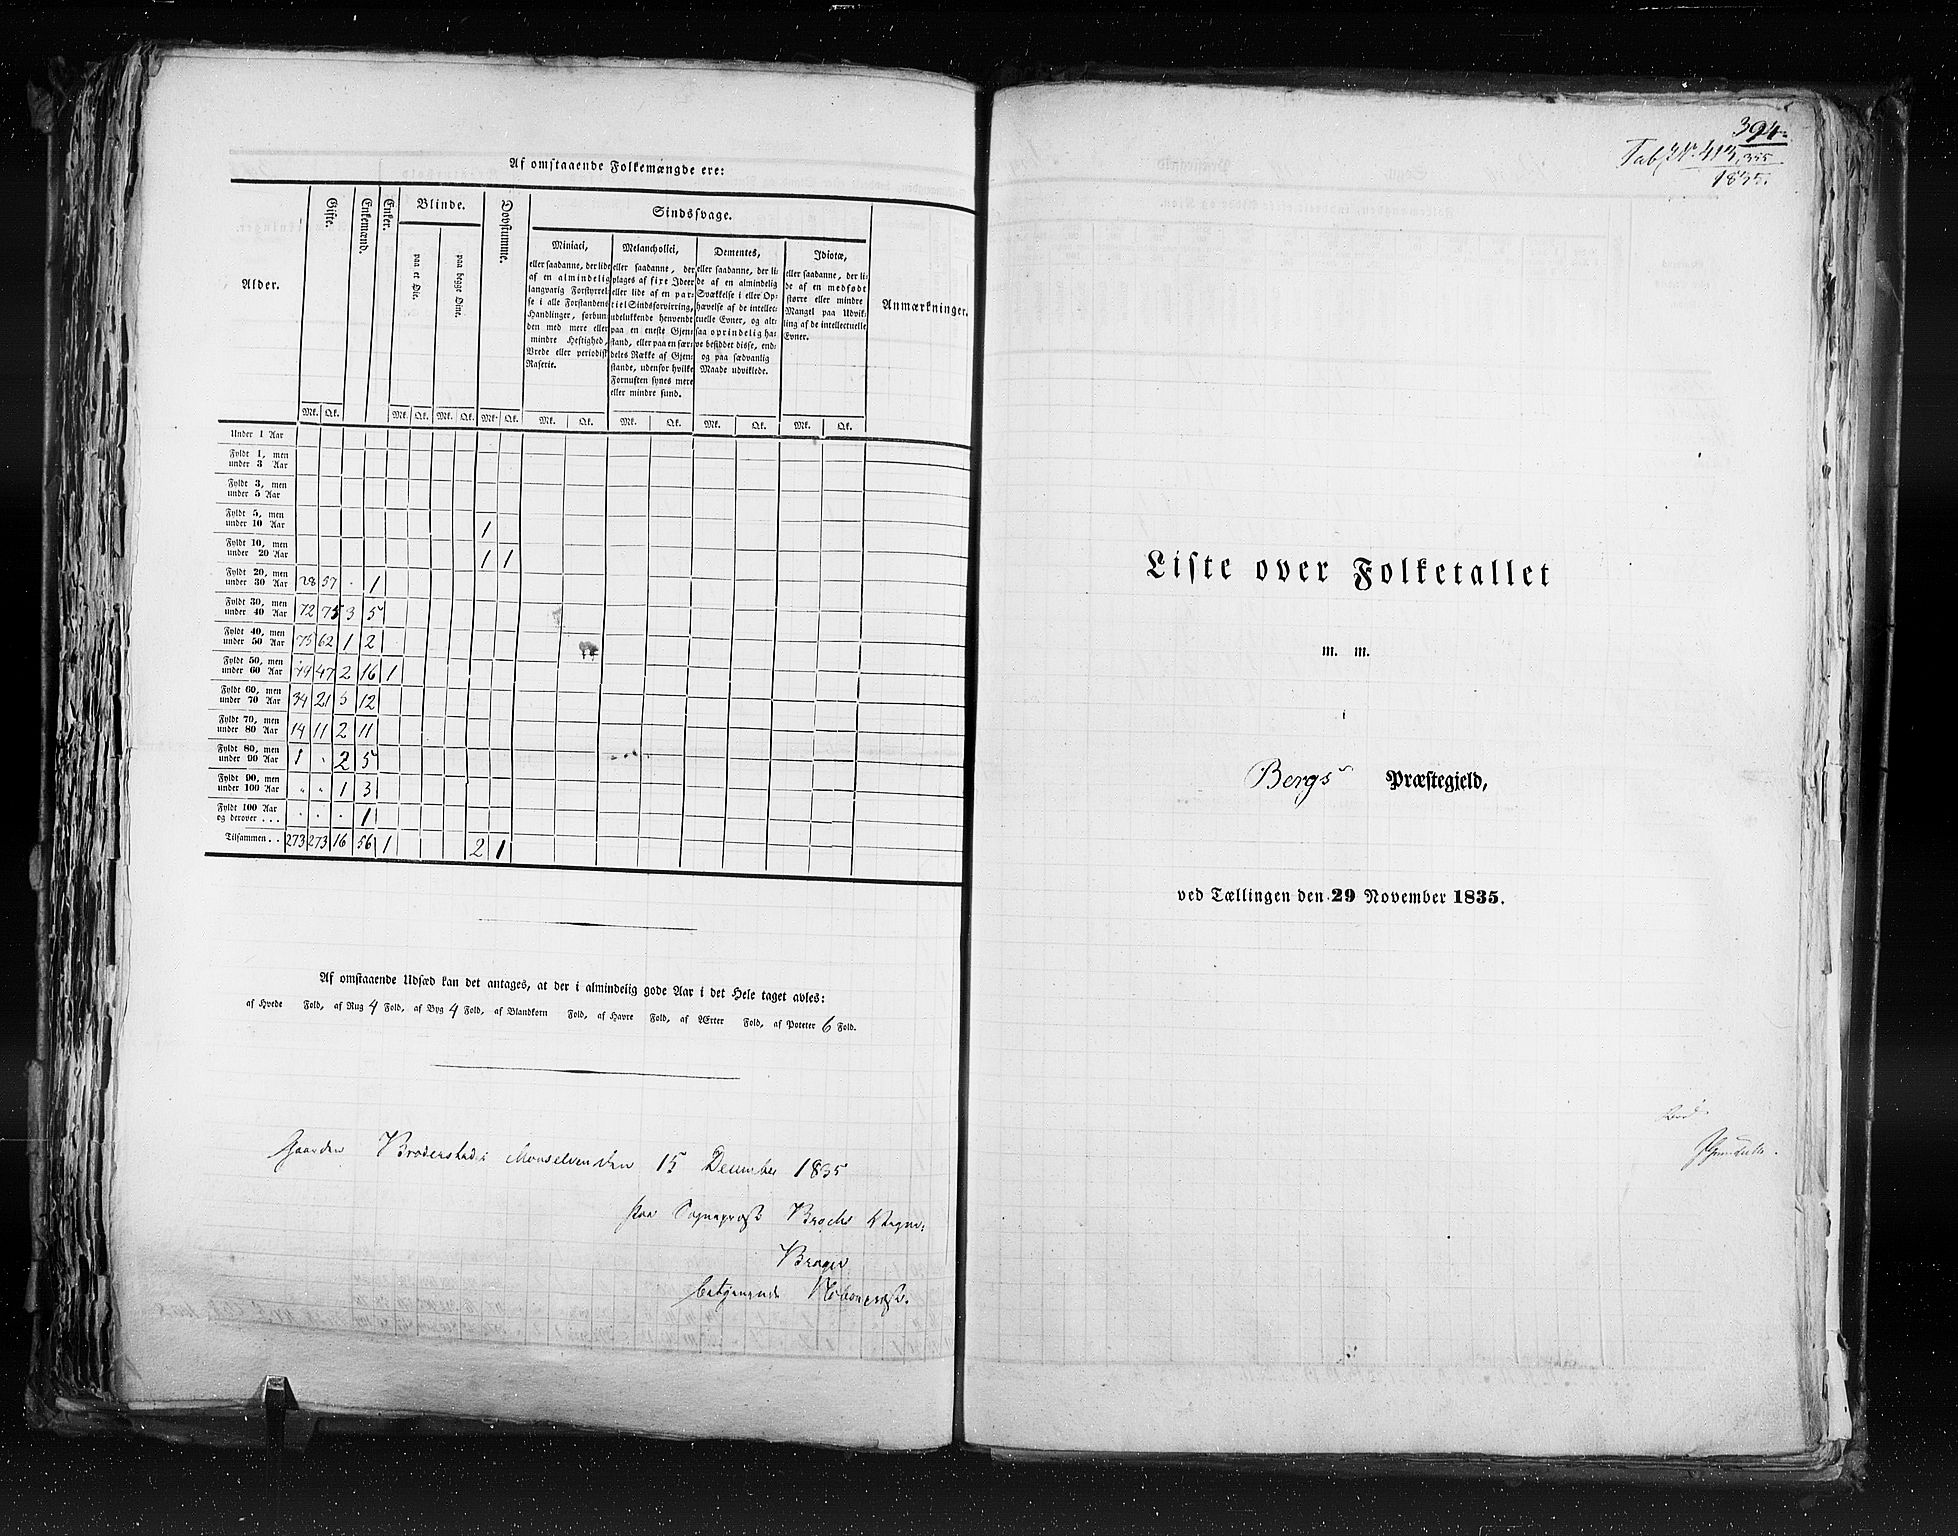 Af omstaaende Folkemængde ere:
Alder.
Gifte.
Enkemænd.
Enker.
Blinde.
paa et Øie.
paa begge Øine.
Døvstumme.
Sindssvage.
Miniaci,
eller saadanne, der lide
af en almindelig
langvarig Forstyrrel-
se i alle Forstandens
Handlinger, forbun-
den med mere eller
mindre Heftighed,
Vrede eller periodisk
Raserie.
Melancholici,
eller saadanne, der
plages af fixe Ideer
eller lide af en par-
tiel Sindsforvirring,
udelukkende henvendt
paa en eneste Gjen-
stand, eller paa en sær-
deles Række af Gjen-
stande, udenfor hvilke
Fornuften synes mere
eller mindre sund.
Dementes,
eller saadanne, der li-
de af en almindelig
Svækkelse i eller Op-
hævelse af de intellec-
tuelle Evner, og alt-
saa oprindelig ha-
ve besiddet disse, end-
og paa sædvanlig
Maade udviklede.
Idiotæ,
eller saadanne, der li-
de af en medfødt
større eller mindre
Mangel paa Udvik-
ling af de intellectuelle
Evner.
Anmærkninger.
Mk. Qk. Mk. Qk. Mk. Qk. Mk. Qk. Mk. Qk. Mk. Qk. Mk. Qk. Mk. Qk.
Under 1 Aar
Fyldt 1, men
under 3 Aar
Fyldt 3, men
under 5 Aar
Fyldt 5, men
under 10 Aar 1
Fyldt 10, men
under 20 Aar 1 1
Fyldt 20, men
under 30 Aar 28 57 . 1
Fyldt 30, men
under 40 Aar 72 75 3 5
Fyldt 40, men
under 50 Aar 75 62 1 2
Fyldt 50, men
under 60 Aar 49 47 2 16 1
Fyldt 60, men
under 70 Aar 34 21 5 12
Fyldt 70, men
under 80 Aar 14 11 2 11
Fyldt 80, men
under 90 Aar 1 . 2 5
Fyldt 90, men
under 100 Aar " " 1 3
Fyldt 100 Aar
og derover . . . . . . 1
Tilsammen . . 273 273 16 56 1 2 1
Af omstaaende Udsæd kan det antages, at der i almindelig gode Aar i det Hele taget avles:
af Hvede Fold, af Rug 4 Fold, af Byg 4 Fold, af Blandkorn Fold, af Havre Fold, af Ærter Fold, af Poteter 6 Fold.
Gaarden 15 December 1835
Sognepræst
394.
Tab. No. 415, 355
1835.
Liste over Folketallet
m. m.
i
Bergs Præstegjeld,
ved Tællingen den 29 November 1835.